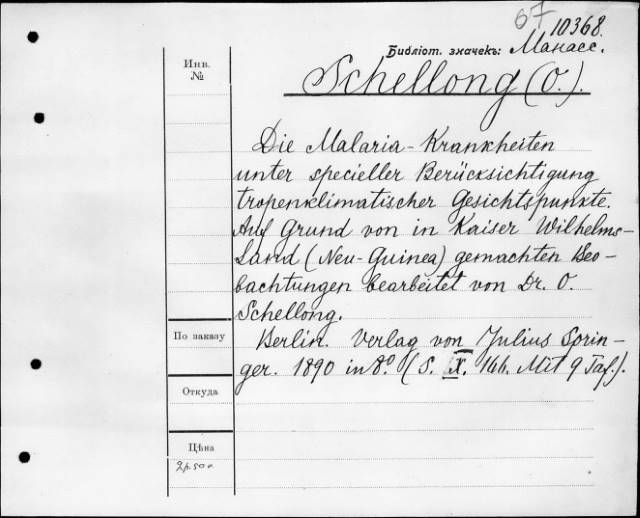 67
10368.
Библіот. значекъ: Манасс.
Инв.
№
Schellong (O.).
Die Malaria-Krankheiten
unter specieller Berücksichtigung
tropenklimatischer Gesichtspunkte.
Auf Grund von in Kaiser Wilhelms-
Land (Neu-Guinea) gemachten Beo-
bachtungen bearbeitet von Dr. O.
Schellong.
По заказу
Berlin. Verlag von Julius Sprin-
ger. 1890 in 8º. (S. IX. 166. Mit 9 Taf.).
Откуда
Цѣна
2р.50к